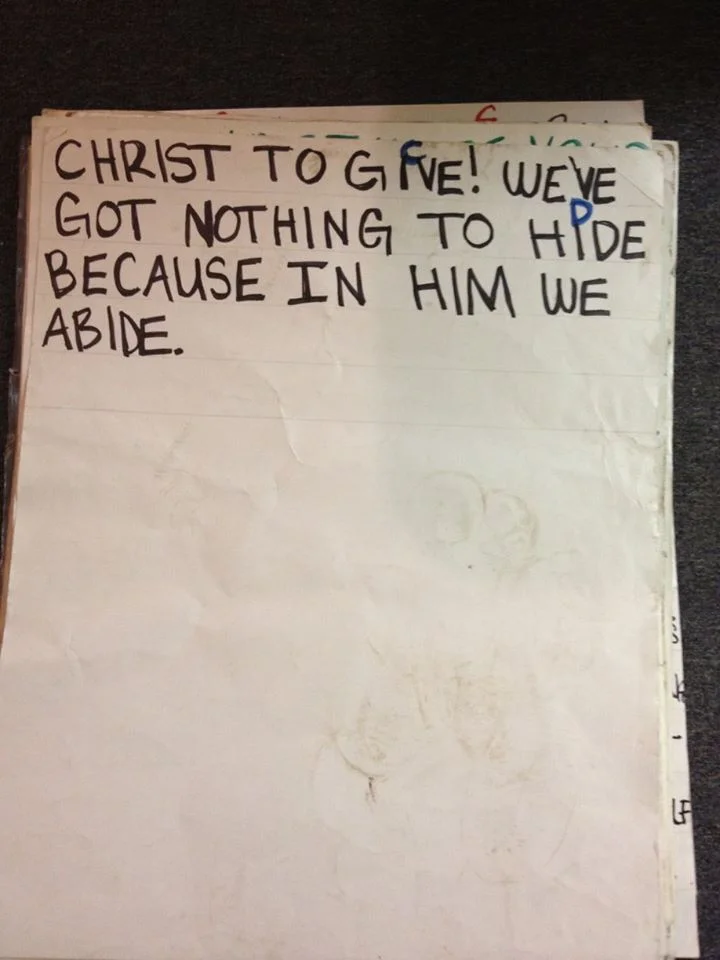 CHRIST TO GIVE! WE'VE
GOT NOTHING TO HIDE
BECAUSE IN HIM WE
ABIDE.